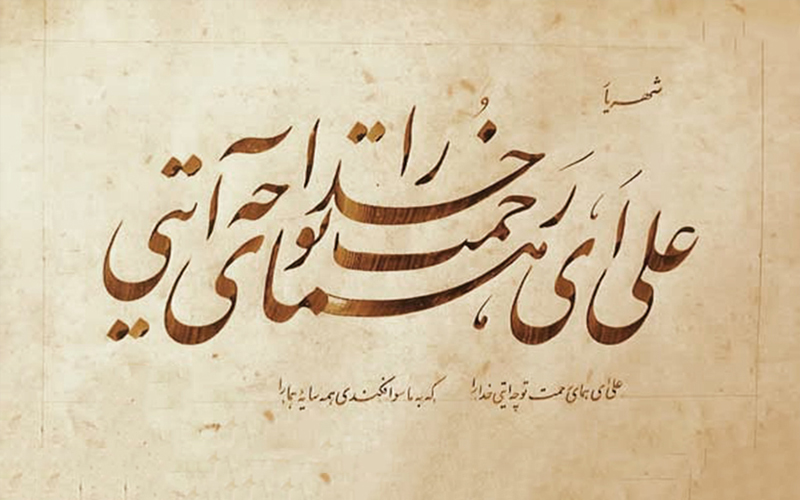 شهریار
علی ای همای رحمت تو چه آیتی خدا را
علی ای همای رحمت تو چه آیتی خدا را
که به ماسوا فکندی همه سایهٔ هما را